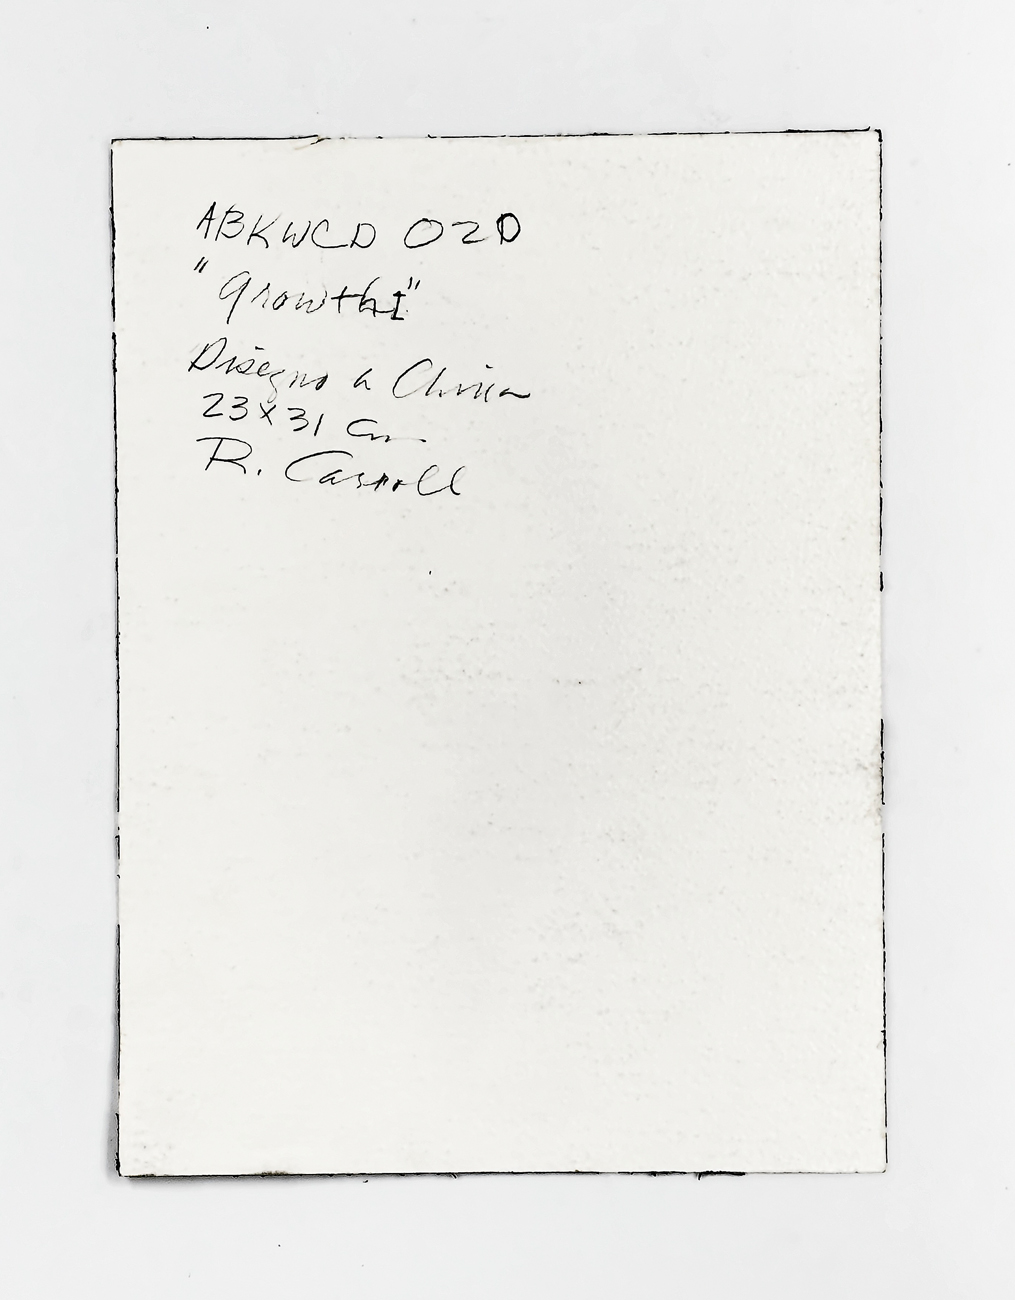 ABKWCD 020
"Growth I"
Disegno a China
23x31 cm
R. Carroll